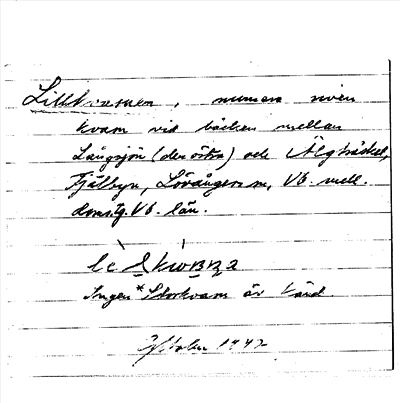 Lillkvarnen, numera riven
kvarn vid bäcken mellan
Långsjön (den östra) och Älgträsket,
Fjälbyn, Lövångers sn, Vb. mell.
doms. Vb. län.
Ingen *Storkvarn är känd.
1942